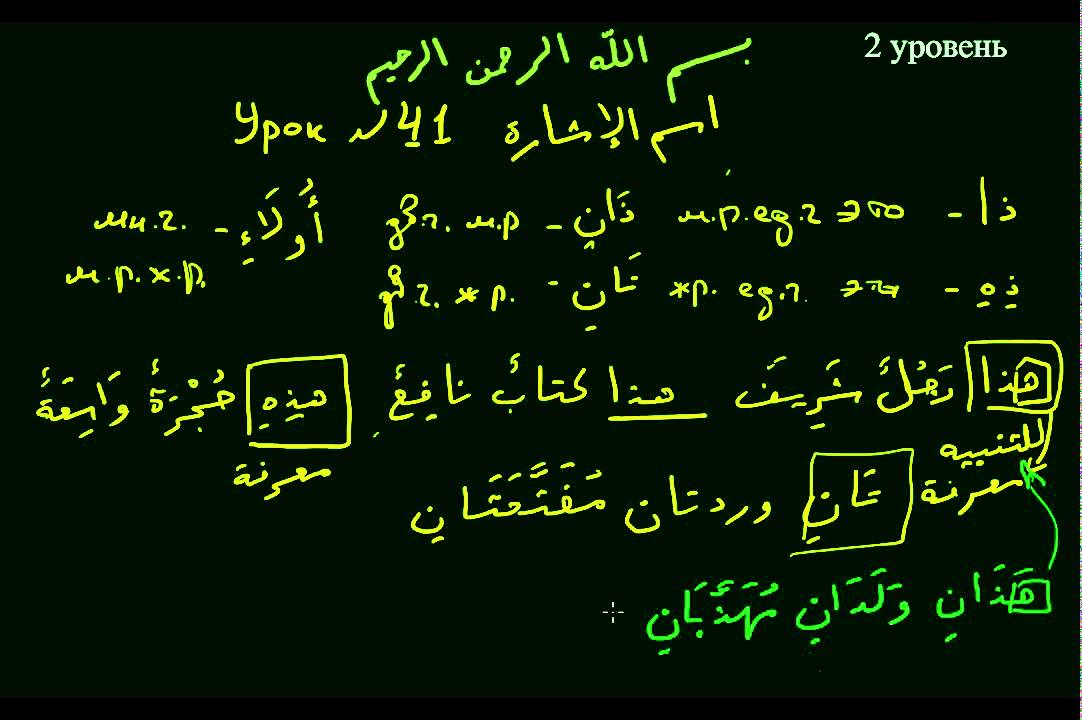 2 уровень
بسم الله الرحمن الرحيم
اسم الإشارة Урок № 41
ذا - это м.р. ед.ч ذَانِ - дв.ч. м.р أُولَاءِ - мн.ч.
м.р. ж.р.
ذِهِ - эта ж.р. ед.ч. تَانِ - дв.ч. ж.р.
هذا رَجُلٌ شَرِيفٌ هذا كتابٌ نافِعٌ هذِهِ حُجْرَةٌ وَاسِعَةٌ
للتنبيه
معرفة تَانِ وردتان مُفَتَّحَتَانِ
معرفة
هَذَانِ وَلَدَانِ مُهَذَّبَانِ